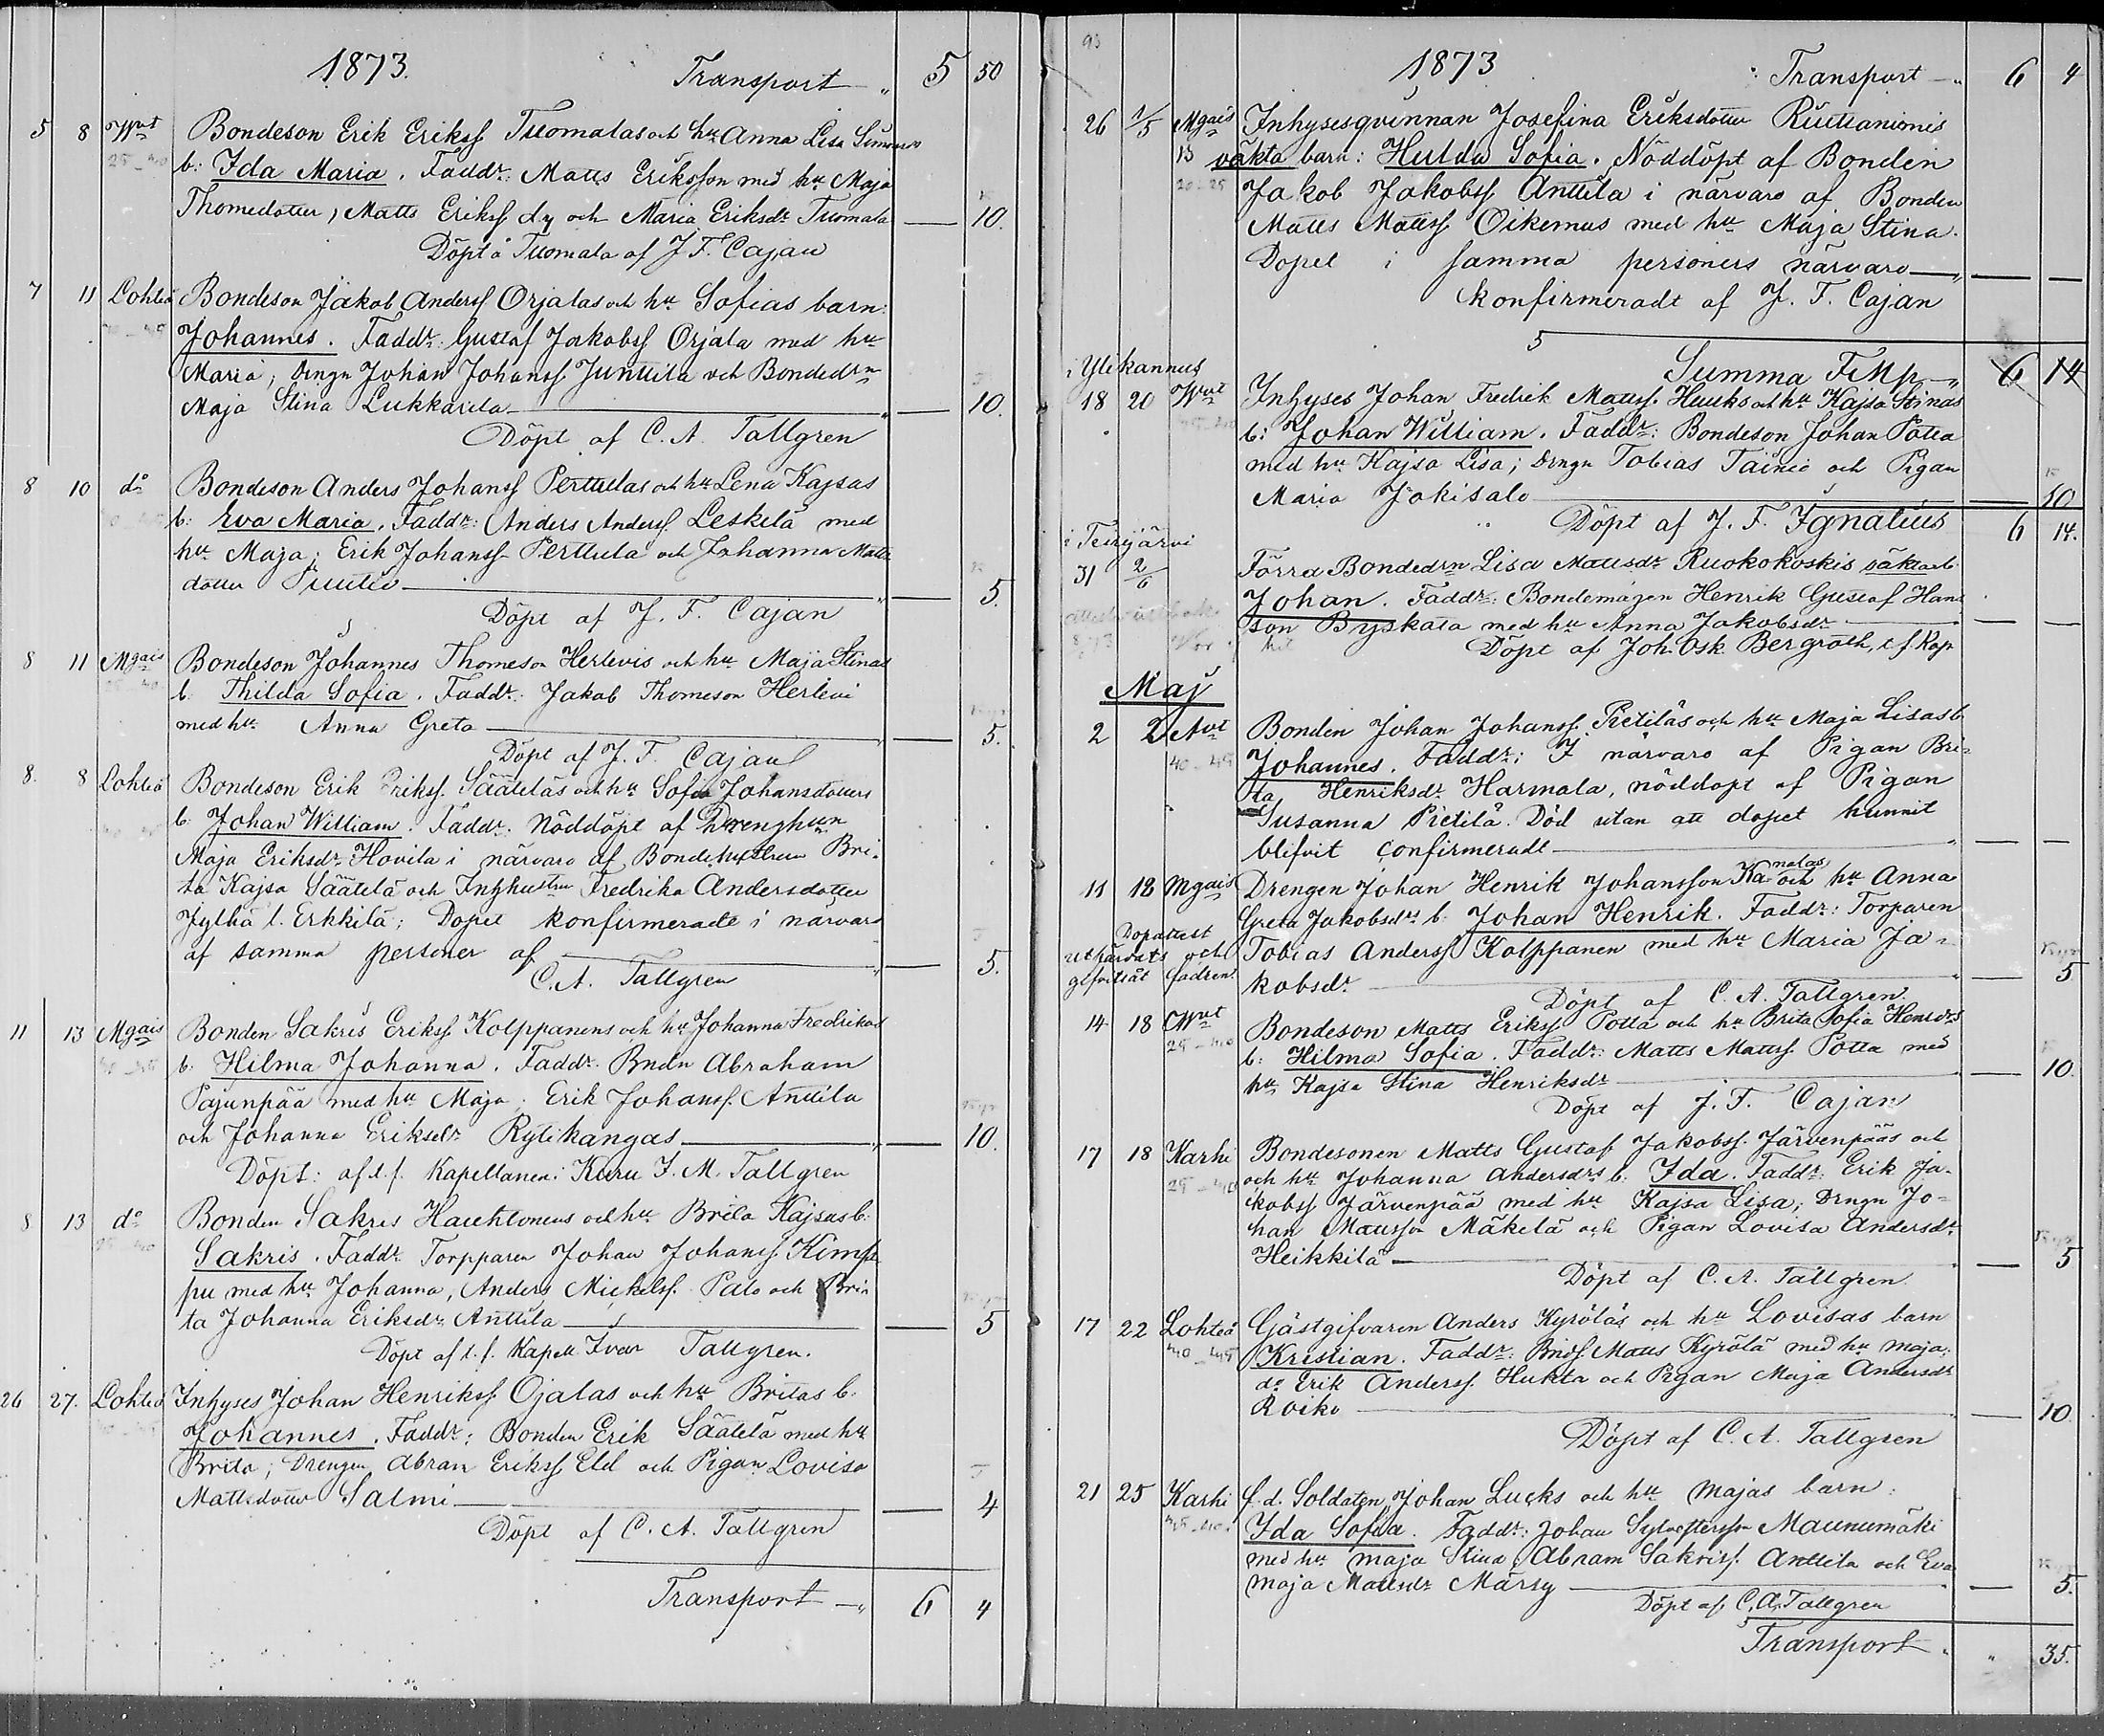 1873. Transport 5 50
5 8 Wvt Bondeson Erik Erikss Tuomalas och hu Anna Lisa Simons
25-40 b: Ida Maria. Faddr: Matts Eriksson med hu Maja
Thomedotter, Matts Erikss dy och Maria Eriksdr Tuomala — 10.
Döpt å Tuomala af J. F. Cajan
7 11 Lohteå Bondeson Jakob Anderss Orjalas och hu Sofias barn:
Johannes. Faddr: Gustaf Jakobss Orjala med hu
Maria; Drngn Johan Johanss Junttila och Bondedrn
Maja Stina Lukkarila — 10.
Döpt af C. A. Tallgren
8 10 do Bondeson Anders Johanss Perttulas och hu Lena Kajsas
b: Eva Maria. Faddr: Anders Anderss. Leskelä med
hu Maja; Erik Johanss Perttula och Johanna Matts
dotter — 5.
Döpt af J. F. Cajan
8 11 Mgais Bondeson Johannes Thomeson Herlevis och hu Maja Stinas
b. Thilda Sofia. Faddr: Jakob Thomeson Herlevi
med hu Anna Greta — 5.
Döpt af J. F. Cajan
8. 8 Lohteå Bondeson Erik Erikss. Sääteläs och hu Sofia Johansdotters
b. Johan William. Faddr. Nöddöpt af Drenghun
Maja Eriksdr Hovila i närvaro af Bondehustrun Bri-
ta Kajsa Säätelä och Inhhustrun Fredrika Andersdotter
Jylhä l. Erkkilä; Dopet konfirmeradt i närvaro
af samma personer af — 5.
C. A. Tallgren
11 13 Mgais Bonden Sakris Erikss Kolppanens och hu Johanna Fredrikas
b. Hilma Johanna. Faddr. Bndn Abraham
Pajunpää med hu Maja; Erik Johanss. Anttila
och Johanna Eriksdr Rytikangas — 10.
Döpt: af t. f. Kapellanen i Kuru I. M. Tallgren
8 13 do Bonden Sakris Hauhtonens och hu Brita Kajsas b.
Sakris. Faddr Torpparen Johan Johanss Kimp-
pu med hu Johanna, Anders Mickelss. Palo och Bri-
ta Johanna Eriksdr Anttila — 5
Döpt af t. f. Kapell. Ivar Tallgren.
26 27. Lohteå Inhyses Johan Henrikss Ojalas och hu Britas b.
Johannes. Faddr: Bonden Erik Säätelä med hu
Brita; Drengen Abram Erikss Eld och Pigan Lovisa
Mattsdotter Salmi — 4
Döpt af C. A. Tallgren
Transport — 6 4
93
1873 Transport — 6 4
26 1/5 Mgais Inhysesqvinnan Josefina Eriksdotter
oäkta barn: Hulda Sofia. Nöddöpt af Bonden
20-25 Jakob Jakobss Anttila i närvaro af Bonden
Matts Mattss Oikemus med hu Maja Stina.
Dopet i samma personers närvaro — —
konfirmeradt af J. F. Cajan
Summa FMp — 6 14
i Ylikannus
18 20 Wvt Inhyses Johan Fredrik Mattss. Hauks och hu Kajsa Stinas
b: Johan William. Faddr: Bondeson Johan Potta
med hu Kajsa Lisa; Drngn Tobias Tainio och Pigan
Maria Jokisalo — 10
Döpt af J. F. Ignatius 6 14.
i Teirijärvi
31 2/6 Förra Bondedrn Lisa Mattsdr Ruokokoskis oäkta b.
Johan. Faddr: Bondemågen Henrik Gustaf Hans
son Byskata med hu Anna Jakobsdr — —
Döpt af Joh. Osk. Bergroth, t. f. Kap.
Maj
2 2 Avt Bonden Johan Johanss. Pietiläs och hu Maja Lisas b.
40-45 Johannes. Faddr: I närvaro af Pigan Bri-
ta Henriksdr Harmala, nöddöpt af Pigan
Susanna Pietilä. Död utan att dopet hunnit
blifvit confirmeradt — —
11 18 Mgais Drengen Johan Henrik Johansson Kanalas och hu Anna
Greta Jakobsdrs b. Johan Henrik. Faddr: Torparen
Dopattest utfärdats och gifvits åt fadren.
Tobias Anderss Kolppanen med hu Maria Ja-
kobsdr — 5
Döpt af C. A. Tallgren.
14 18 Wvt Bondeson Matts Erikss Potta och hu Brita Sofia Henrdrs
25-40 b: Hilma Sofia. Faddr: Matts Mattss. Potta med
hu Kajsa Stina Henriksdr — 10.
Döpt af J. F. Cajan
17 18 Karhi Bondesonen Matts Gustaf Jakobss. Järvenpääs och
25-40 och hu Johanna Andersdrs b. Ida. Faddr: Erik Ja-
kobss Järvenpää med hu Kajsa Lisa; Drngn Jo-
han Mattsson Mäkelä och Pigan Lovisa Andersdr
Heikkilä — 5
Döpt af C. A. Tallgren.
17 22 Lohteå Gästgifvaren Anders Kyröläs och hu Lovisas barn
40-45 Kristian. Faddr: Bnds. Matts Kyrölä med hu Maja;
do Erik Anderss. Hukta och Pigan Maja Andersdr
Roiko — 10.
Döpt af C. A. Tallgren
21 25 Karhi f. d. Soldaten Johan Lucks och hu Majas barn:
Ida Sofia. Faddr: Johan Sylvestersson Maunumäki
med hu Maja Stina, Abram Sakriss. Anttila och Eva
Maja Mattsdr Märsy — 5.
Döpt af C. A. Tallgren
Transport 35.